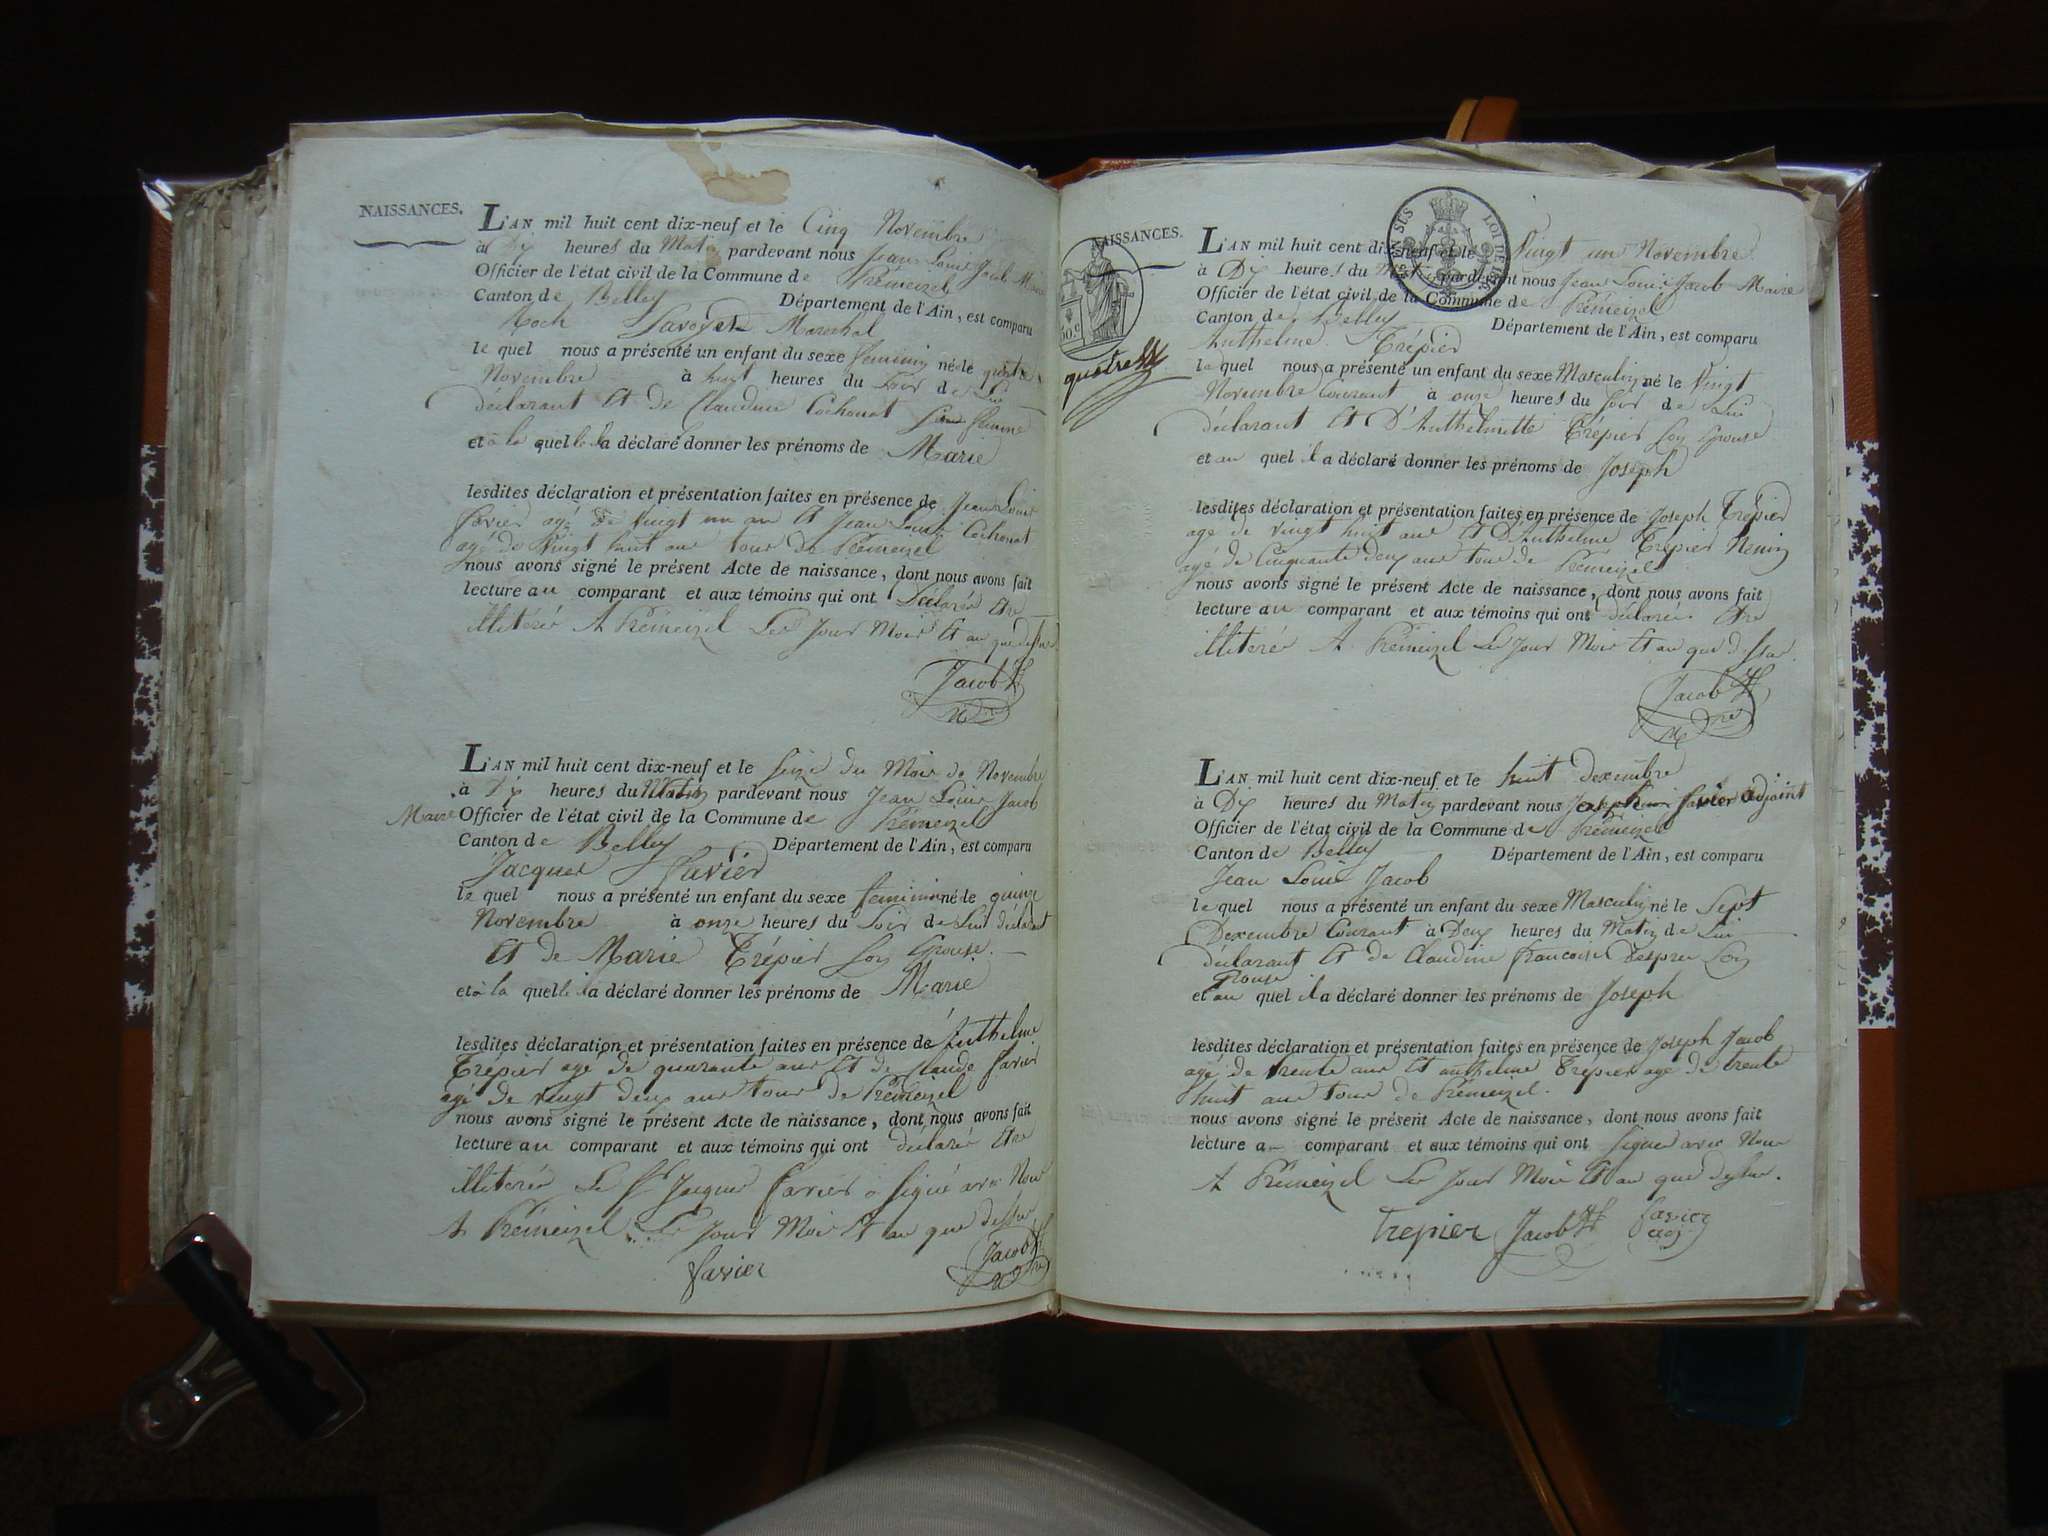 NAISSANCES.
L'AN mil huit cent dix-neuf et le Cinq Novembre
à Dix heures du Matin pardevant nous Jean Louis Jacob Maire
Officier de l'état civil de la Commune de Prémeizel
Canton de Belley Département de l'Ain, est comparu
Roch Savoyet Marechal
le quel nous a présenté un enfant du sexe feminin né le quatre
Novembre à huit heures du Soir de Lui
déclarant Et de Claudine Cochonat Sa femme
et à la quelle il a déclaré donner les prénoms de Marie
lesdites déclaration et présentation faites en présence de Jean Louis
favier agé de Vingt un an Et Jean Louis Cochonat
agé de Vingt huit ans tous de Prémeizel
nous avons signé le présent Acte de naissance, dont nous avons fait
lecture au comparant et aux témoins qui ont Déclarés Etre
illiterés A Prémeizel Les Jour Mois Et an que dessus
Jacob
Mre
L'AN mil huit cent dix-neuf et le Seize du Mois de Novembre
à Dix heures du Matin pardevant nous Jean Louis Jacob
Maire Officier de l'état civil de la Commune de Prémeizel
Canton de Belley Département de l'Ain, est comparu
Jacques favier
le quel nous a présenté un enfant du sexe feminin né le quinze
Novembre à onze heures du Soir de Lui déclarant
Et de Marie Trépier Son Epouse.
et à la quelle il a déclaré donner les prénoms de Marie
lesdites déclaration et présentation faites en présence de Anthelme
Trépier agé de quarante ans Et de Claude favier
agé de vingt deux ans tous de Prémeizel
nous avons signé le présent Acte de naissance, dont nous avons fait
lecture au comparant et aux témoins qui ont déclarés Etre
illiterés Le Sr Jacques favier a Signé avec Nous
A Prémeizel Les Jour Mois Et an que dessus
favier Jacob
Mre
NAISSANCES.
50.c
quatre
LOI DE
L'AN mil huit cent dix-neuf et le Vingt un Novembre
à Dix heures du Matin pardevant nous Jean Louis Jacob Maire
Officier de l'état civil de la Commune de Prémeizel
Canton de Belley Département de l'Ain, est comparu
Anthelme Trépier
le quel nous a présenté un enfant du sexe Masculin né le Vingt
Novembre Courant à onze heures du Soir de Lui
déclarant Et D'Anthelmette Trépier Son Epouse
et au quel il a déclaré donner les prénoms de Joseph
lesdites déclaration et présentation faites en présence de Joseph Trépier
agé de vingt huit ans Et D'Anthelme Trépier
agé de Cinquante deux ans tous de Prémeizel
nous avons signé le présent Acte de naissance, dont nous avons fait
lecture au comparant et aux témoins qui ont déclarés Etre
illiterés A Prémeizel Les Jour Mois Et an que dessus.
Jacob
Mre
L'AN mil huit cent dix-neuf et le huit dexembre
à Dix heures du Matin pardevant nous favier adjoint
Officier de l'état civil de la Commune de Prémeizel
Canton de Belley Département de l'Ain, est comparu
Jean Louis Jacob
le quel nous a présenté un enfant du sexe Masculin né le Sept
Dexembre Courant à Deux heures du Matin de Lui
déclarant Et de Claudine francoise Son
Epouse
et au quel il a déclaré donner les prénoms de Joseph
lesdites déclaration et présentation faites en présence de Joseph Jacob
agé de trente ans Et anthelme Trepier agé de trente
huit ans tous de Prémeizel.
nous avons signé le présent Acte de naissance, dont nous avons fait
lecture a comparant et aux témoins qui ont Signé avec Nous
A Prémeizel Les Jour Mois Et an que dessus.
Trepier Jacob favier